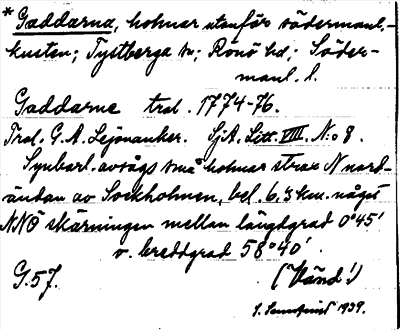 * Gaddarna, holmar utanför södermanl.-
kusten; Tystberga sn; Rönö hd; Söder-
manl. l.
Gaddarne trol. 1774-76.
Trol. G. A. Lejonanker. SjA. Litt. VIII. N:o 8.
Synbarl. avsågs små holmar strax N nord-
ändan av Sockholmen, bel. 6.3 km. något
NNÖ skärningen mellan längdgrad 0°45'
o. breddgrad 58°40'.
G. 57. (Vänd!)
1939.